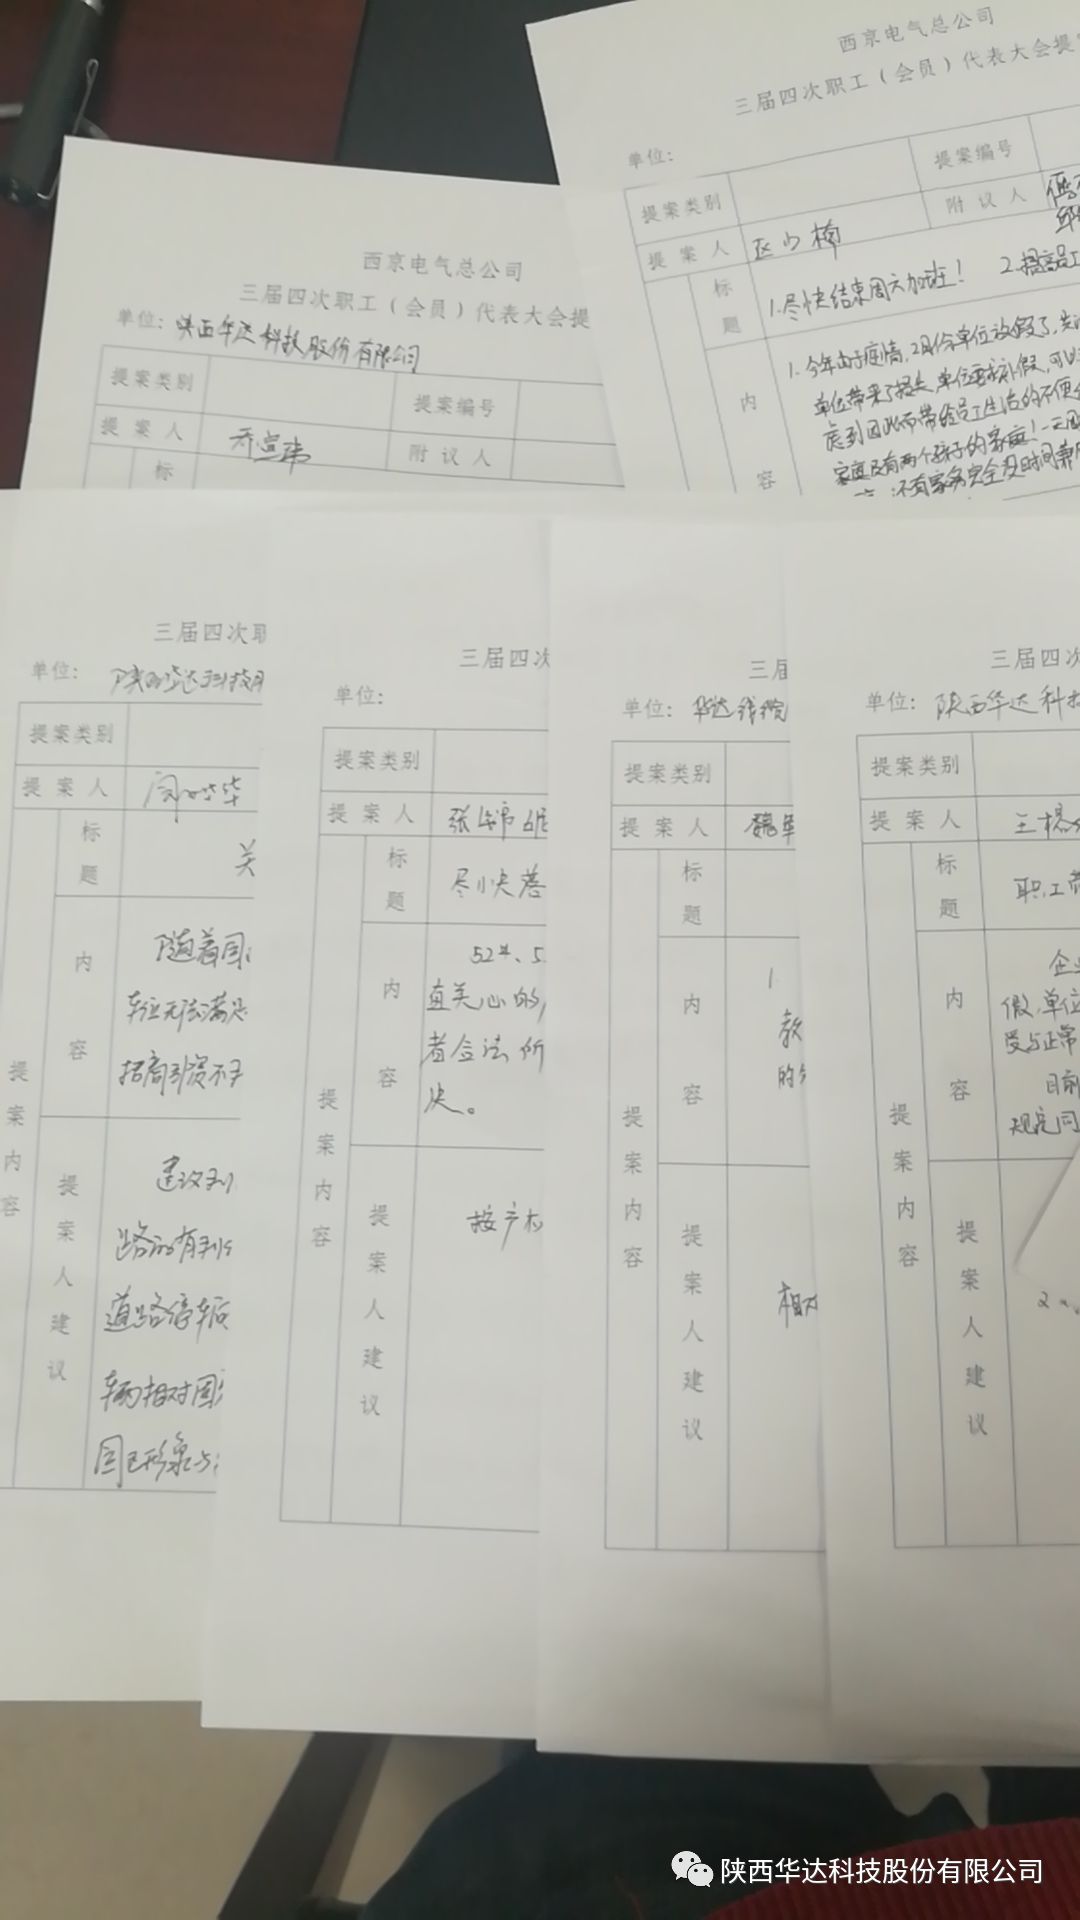 西京电气总公司
三届四次职工（会员）代表大会提案
单位：
提案类别
提案编号
提案人
附议人
标题
1.尽快结束周六加班！ 2.提高员工
内容
1.今年由于疫情,2月份单位放假了,
单位带来了损失,单位要求补假,可以
虑到因此而带给员工生活的不便
家庭及有两个孩子的家庭！
还有家务完全没时间兼顾
西京电气总公司
三届四次职工（会员）代表大会提
单位：陕西华达科技股份有限公司
提案类别
提案编号
提案人 乔宣玮
附议人
标
三届四次职
单位：陕西华达科技股
提案类别
提案人
标题
关
提案内容
内容
随着园
车位无法满足
招商引资不
提案人建议
建议
路的有利
道路停车
车辆相对固
园区形象与
三届四次
单位：
提案类别
提案人 张锦
标题
尽快落
提案内容
内容
52#、5
直关心的
者合法所
决。
提案人建议
按产权
三届
单位：华达线缆
提案类别
提案人 魏军
标题
提案内容
内容
1.
教
的
提案人建议
相
三届四次
单位：陕西华达科技
提案类别
提案人 王杨
标题
职工带
提案内容
内容
企业
假,单位
受与正常
目前
规定同
提案人建议
2、
陕西华达科技股份有限公司